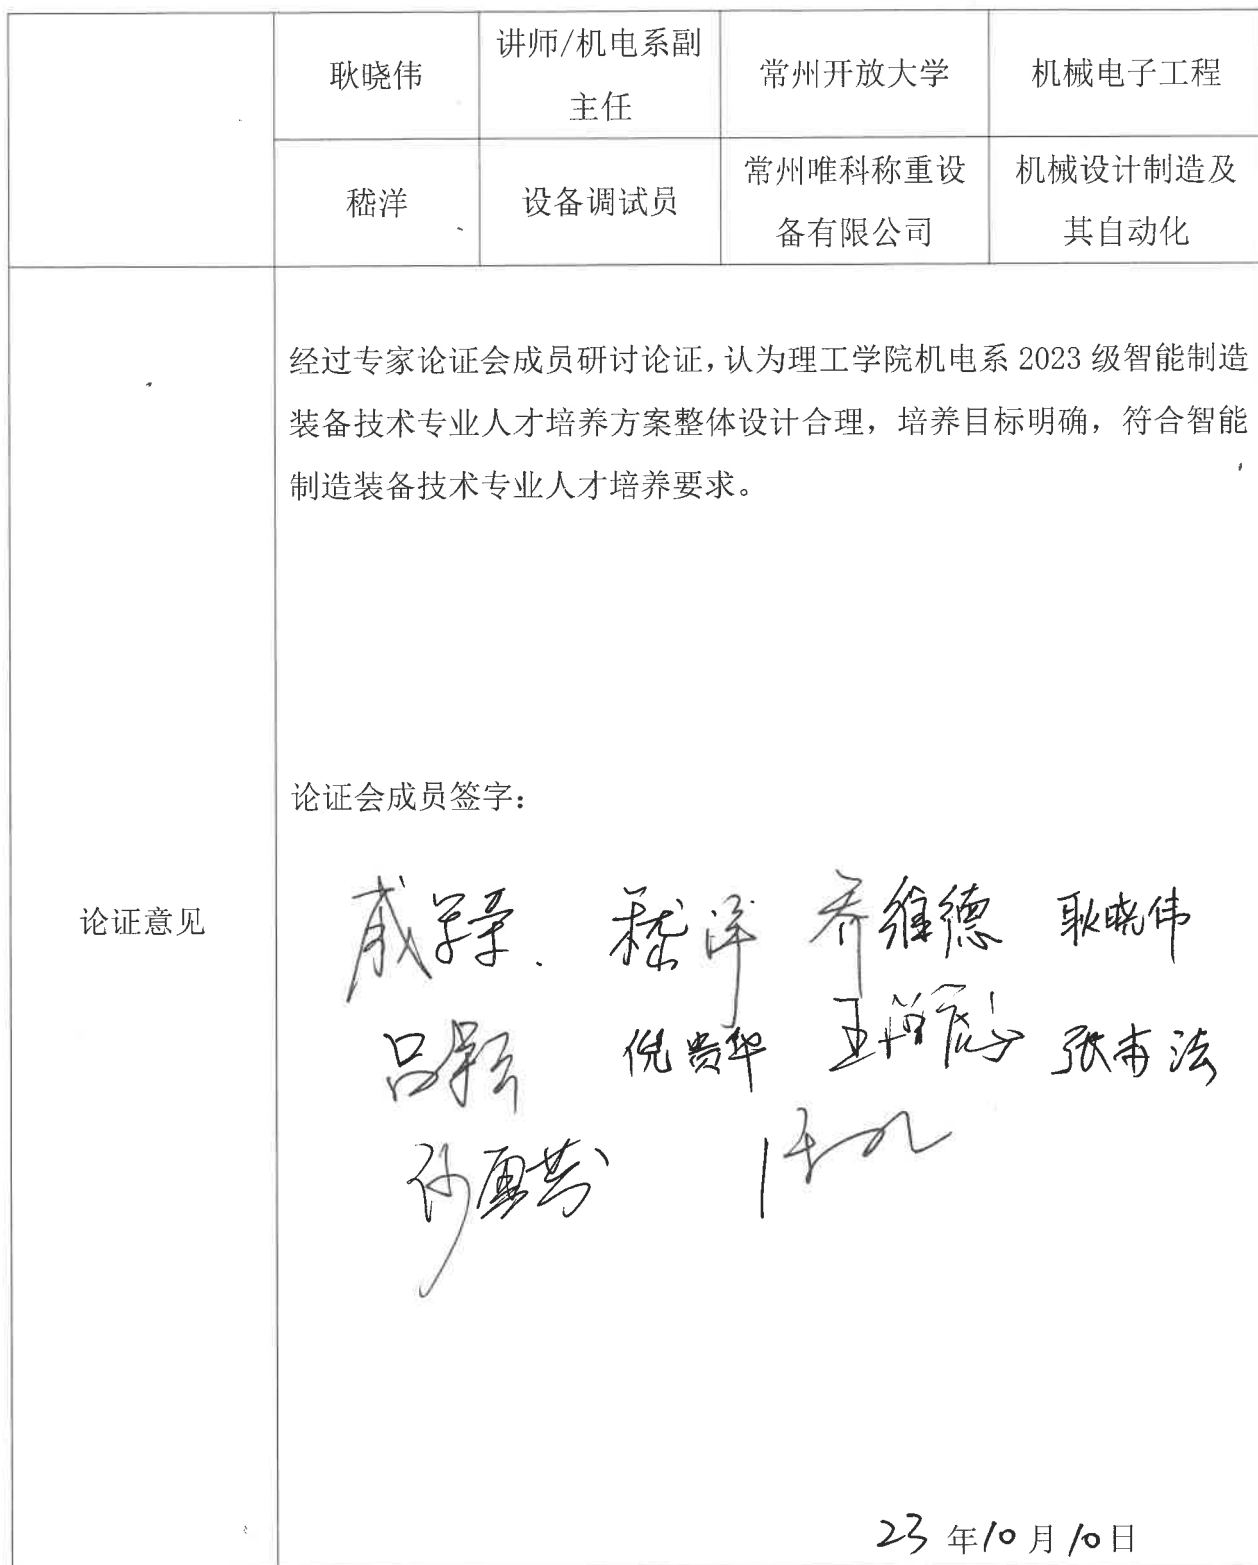 耿晓伟 讲师/机电系副主任 常州开放大学 机械电子工程
嵇洋 设备调试员 常州唯科称重设备有限公司 机械设计制造及其自动化
论证意见
经过专家论证会成员研讨论证，认为理工学院机电系 2023 级智能制造
装备技术专业人才培养方案整体设计合理，培养目标明确，符合智能
制造装备技术专业人才培养要求。
论证会成员签字：
嵇洋 乔维德 耿晓伟
吕颖 倪贵华 张甫法
23 年 10 月 10 日